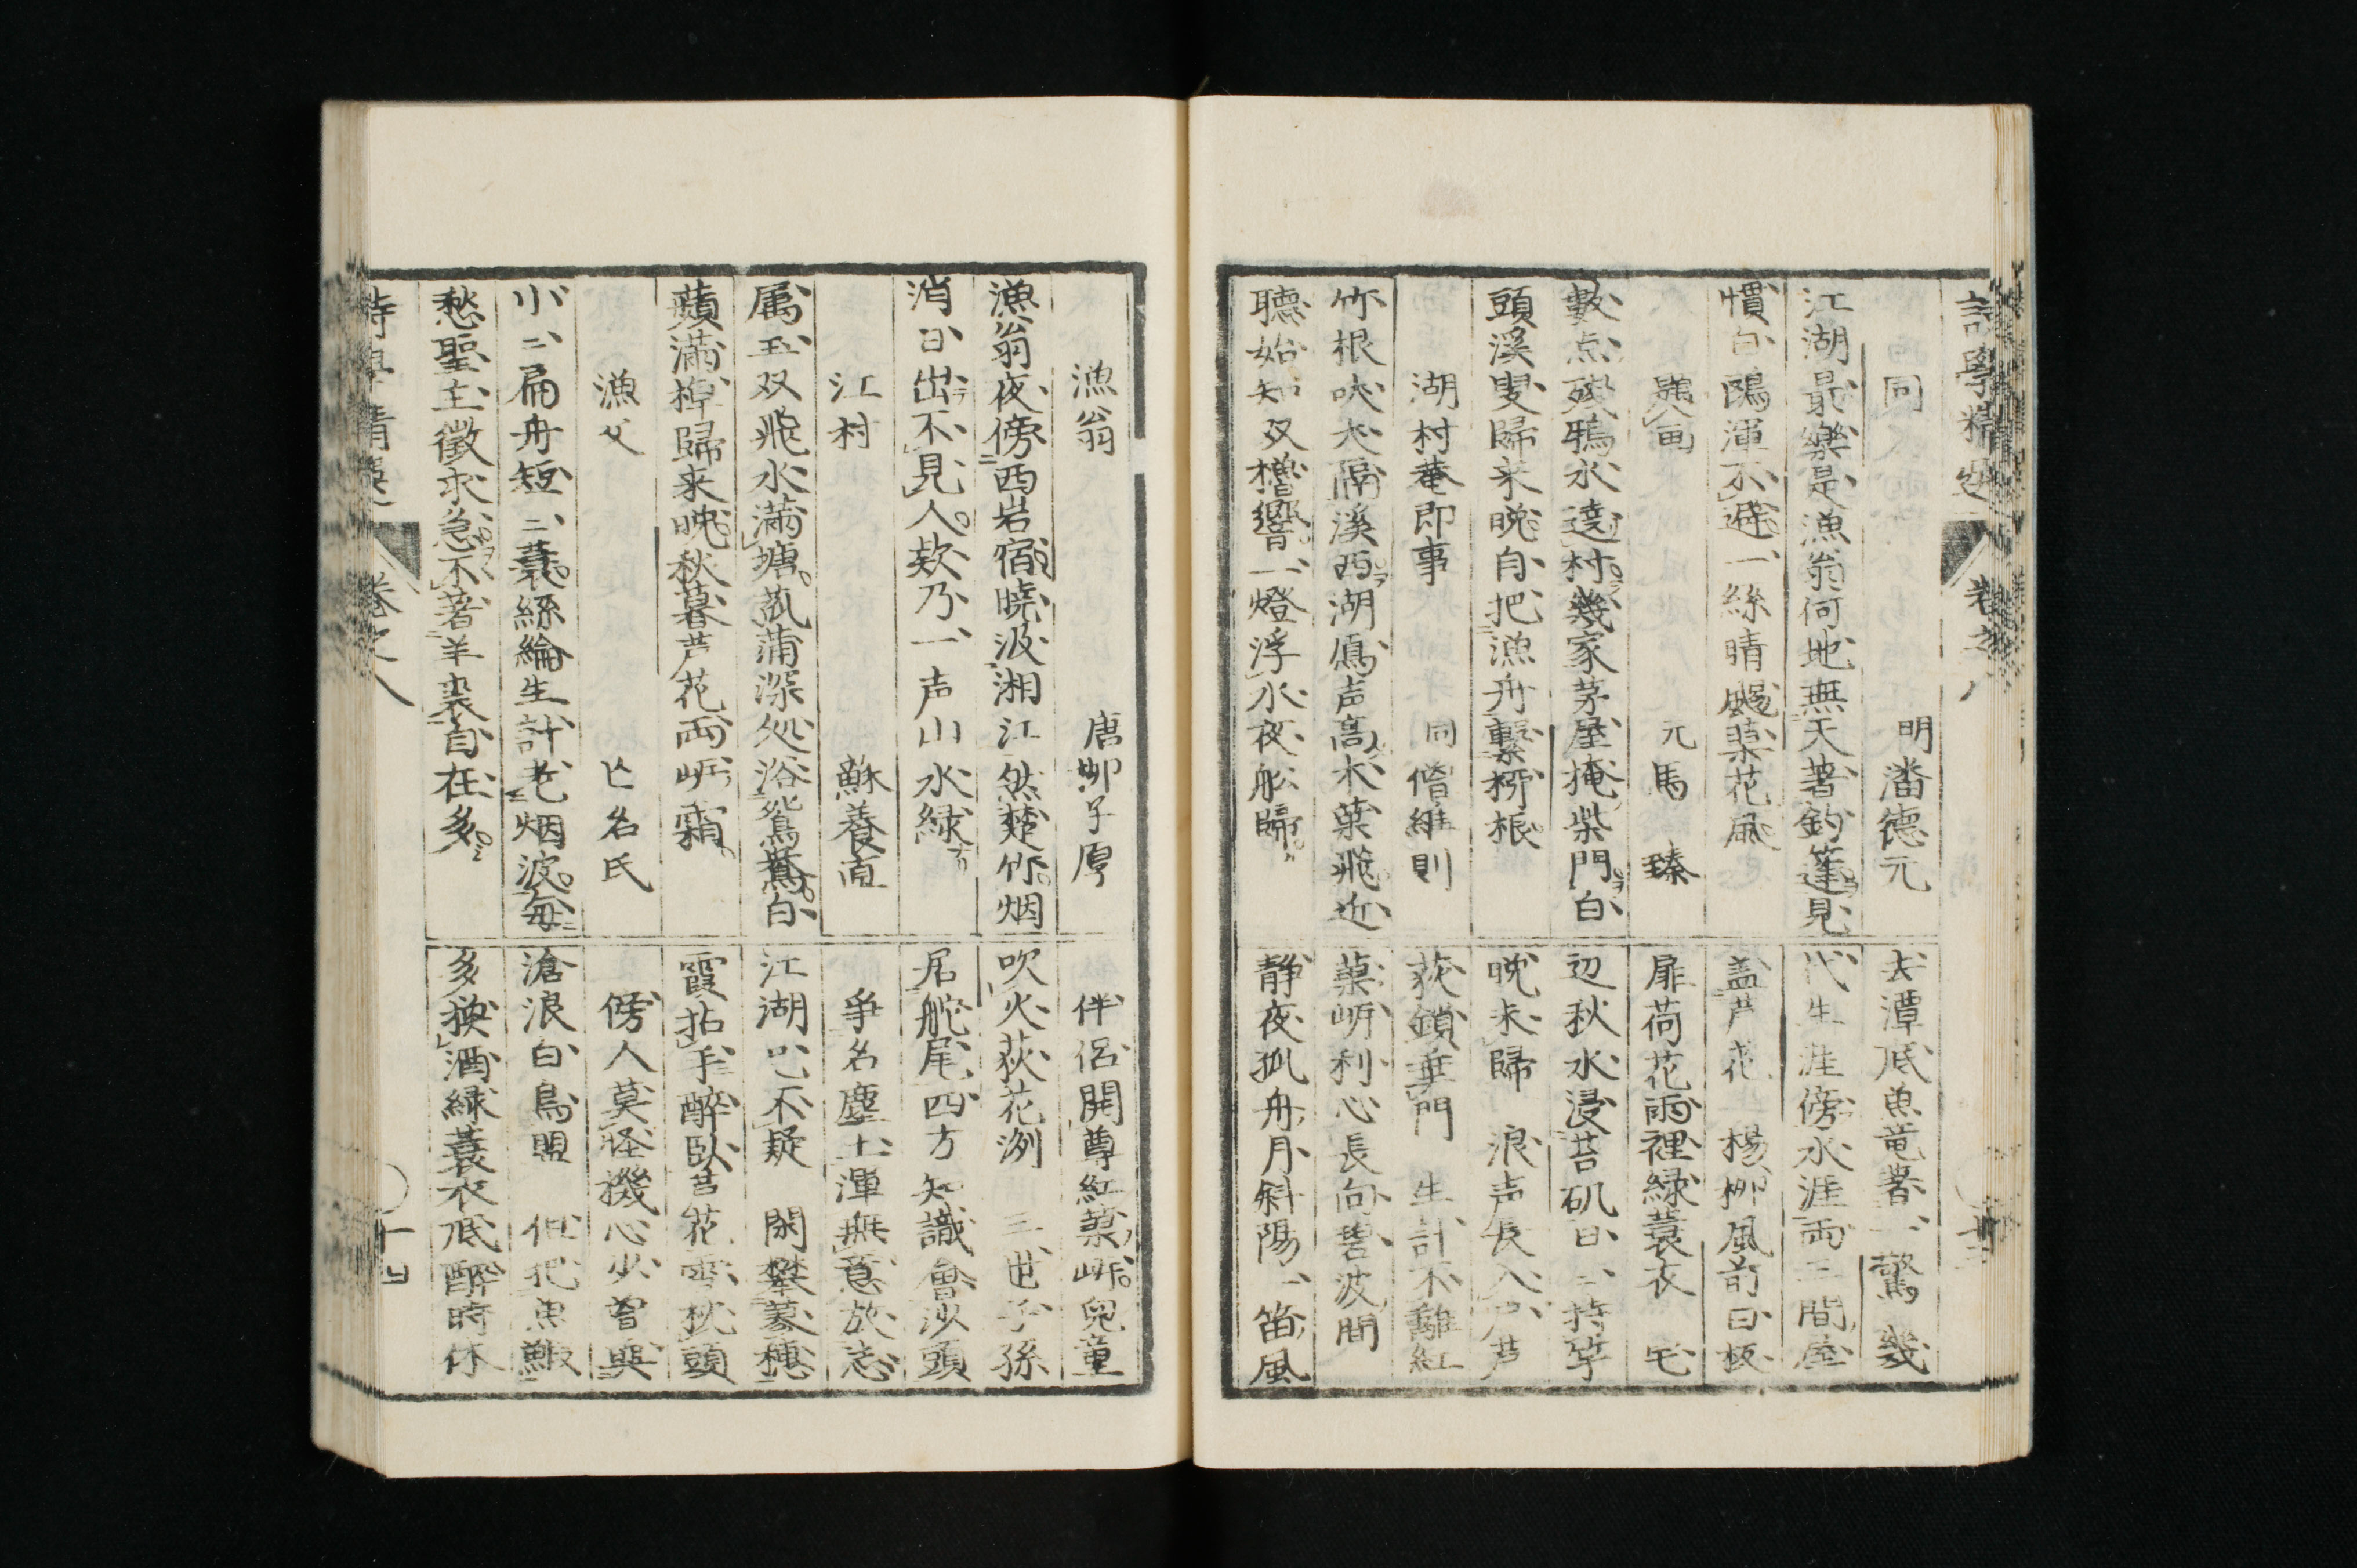 詩學精選 卷之八
同 明 潘德元
江湖最樂是漁翁何地無天著釣篷見
慣白鷗渾不避一絲晴颺藻花風
題画 元 馬臻
數点殘鴉水遶村幾家茅屋掩柴門白
頭溪叟歸来晚自把漁舟繫栁根
湖村菴即事 同 僧維則
竹根吠犬隔溪西湖鴈声高木葉飛近
聽始知双櫓響一燈浮水夜舩歸
去潭底魚竜著一驚 幾
代生涯傍水涯両三間屋
盖芦花 楊栁風前白板
扉荷花雨裡緑蓑衣 宅
辺秋水浸苔磯日二持竿
晚未歸 浪声長入戸芦
荻鎖垂門 生計不離紅
蓼岍利心長向碧波間
靜夜孤舟月斜陽一笛風
漁翁 唐栁子厚
漁翁夜傍西岩宿曉汲湘江然楚竹烟
消日出不見人欸乃一声山水緑
江村 蘇養直
属玉双飛水満塘菰蒲深処浴鴛鴦白
蘋満棹歸来晚秋暮芦花両岍霜
漁父 亡名氏
小二扁舟短二蓑絲綸生計老烟波每
愁聖主徵求急不著羊裘自在多
伴侶開尊紅蓼岍兒童
吹火荻花洌 三世子孫
居舵尾四方知識會沙頭
爭名塵土渾無意放志
江湖心不疑 閑攀菱穗
霞拈手醉臥芦花雪枕頭
傍人莫怪機心少曾與
滄浪白鳥盟 但把魚鰕
多換酒緑蓑衣底醉時休
詩學精選 卷之八 十四